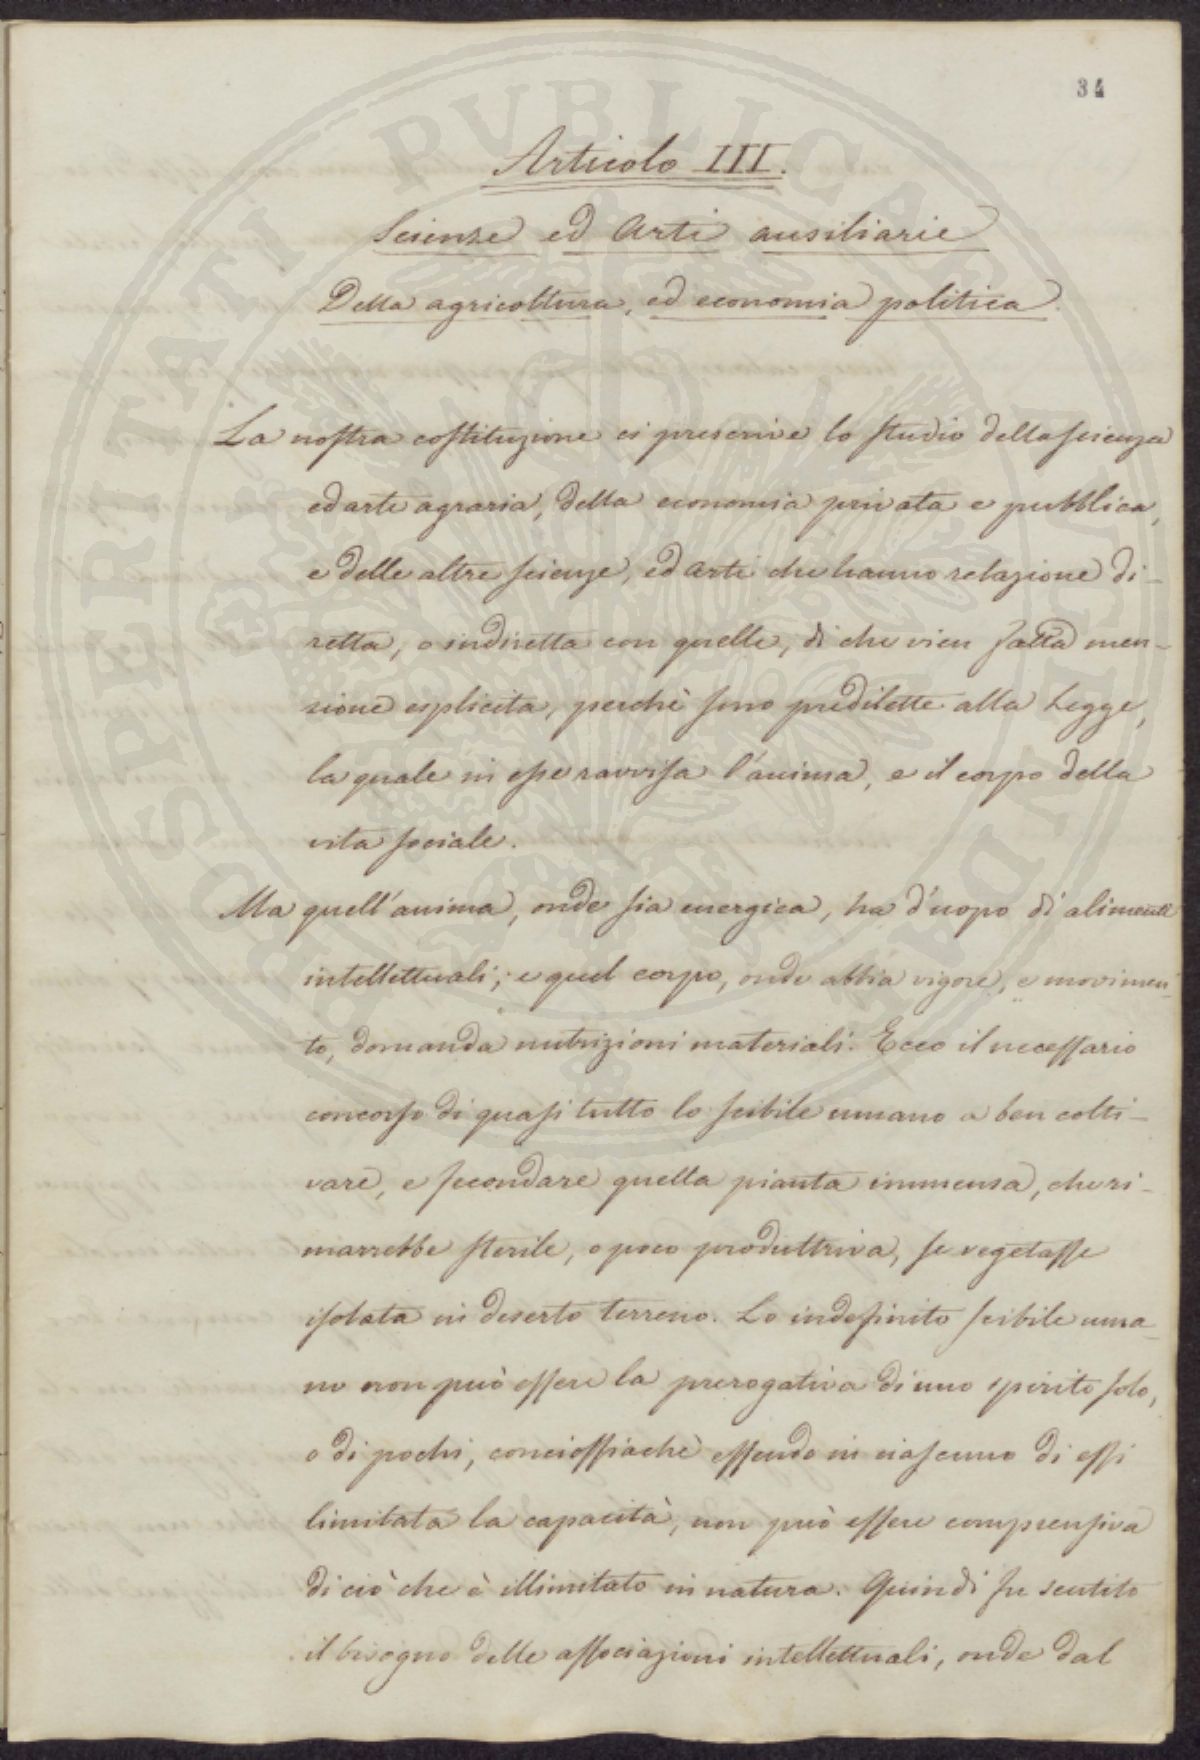 34
Articolo III.
Scienze ed Arti ausiliarie
Della agricoltura, ed economia politica.
La nostra costituzione ci prescrive lo studio della scienza
ed arte agraria, della economia privata e pubblica,
e delle altre scienze, ed arti che hanno relazione di-
retta, o indiretta con quelle, di che vien fatta men-
zione esplicita, perchè sono predilette alla Legge,
la quale in esse ravvisa l'anima, e il corpo della
vita sociale.
Ma quell'anima, onde sia energica, ha d'uopo di alimenti
intellettuali; e quel corpo, onde abbia vigore, e movimen-
to, domanda nutrizioni materiali. Ecco il necessario
concorso di quasi tutto lo scibile umano a ben colti-
vare, e fecondare quella pianta immensa, che ri-
marrebbe sterile, o poco produttriva, se vegetasse
isolata in deserto terreno. Lo indefinito scibile uma-
no non può essere la prerogativa di uno spirito solo,
o di pochi, conciossiachè essendo in ciascuno di essi
limitata la capacità, non può essere comprensiva
di ciò che è illimitato in natura. Quindi fu sentito
il bisogno delle associazioni intellettuali, onde dal
PROSPERITATI PVBLICAE AVGENDAE